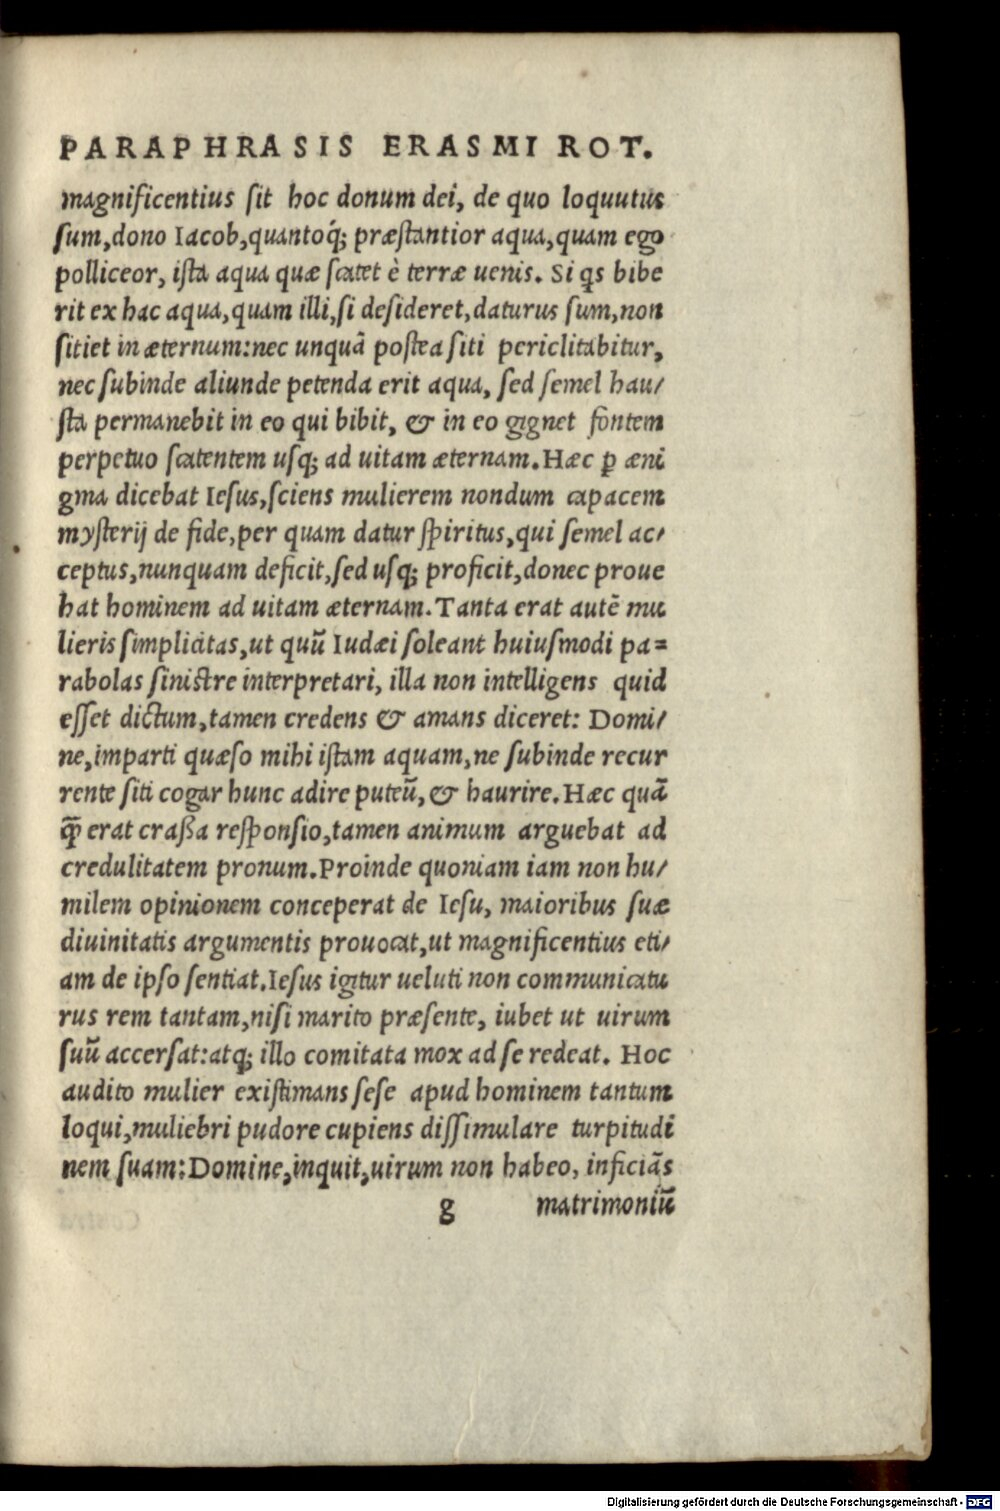 PARAPHRASIS ERASMI ROT.
magnificentius sit hoc donum dei, de quo loquutus
sum, dono Iacob, quantoq́; præstantior aqua, quam ego
polliceor, ista aqua quæ scatet è terræ uenis. Si qs bibe
rit ex hac aqua, quam illi, si desideret, daturus sum, non
sitiet in æternum: nec unquā postea siti periclitabitur,
nec subinde aliunde petenda erit aqua, sed semel hau/
sta permanebit in eo qui bibit, & in eo gignet fontem
perpetuo scatentem usq; ad uitam æternam. Hæc ꝑ æni
gma dicebat Iesus, sciens mulierem nondum capacem
mysterij de fide, per quam datur spiritus, qui semel ac/
ceptus, nunquam deficit, sed usq; proficit, donec proue
hat hominem ad uitam æternam. Tanta erat autē mu
lieris simplicitas, ut quū Iudæi soleant huiusmodi pa=
rabolas sinistre interpretari, illa non intelligens quid
esset dictum, tamen credens & amans diceret: Domi/
ne, imparti quæso mihi istam aquam, ne subinde recur
rente siti cogar hunc adire puteū, & haurire. Hæc quā
q̄ꝫ erat craßa responsio, tamen animum arguebat ad
credulitatem pronum. Proinde quoniam iam non hu/
milem opinionem conceperat de Iesu, maioribus suæ
diuinitatis argumentis prouocat, ut magnificentius eti/
am de ipso sentiat. Iesus igitur ueluti non communicatu
rus rem tantam, nisi marito præsente, iubet ut uirum
suū accersat: atq; illo comitata mox ad se redeat. Hoc
audito mulier existimans sese apud hominem tantum
loqui, muliebri pudore cupiens dissimulare turpitudi
nem suam: Domine, inquit, uirum non habeo, inficiās
g matrimoniū
Digitalisierung gefördert durch die Deutsche Forschungsgemeinschaft - DFG